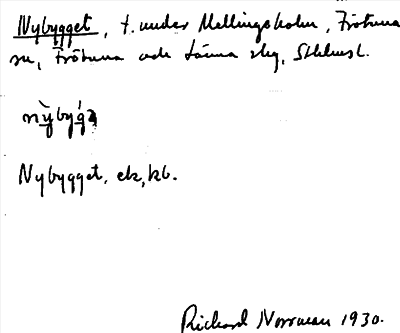 Nybygget, t. under Mellingsholm, Frötuna
sn, Frötuna och Länna slg, Sthlmsl.
Nybygget, ek, kb.
Richard Norrman 1930.